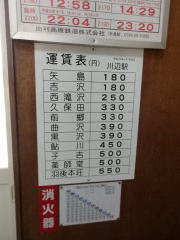 12:58 14:29
22:04 23:20
由利高原鉄道株式会社
運賃表(円) 川辺駅
矢島 180
吉沢 180
西滝沢 250
久保田 330
前郷 330
曲沢 390
黒沢 390
鮎川 450
子吉 500
薬師堂 500
羽後本荘 550
消火器